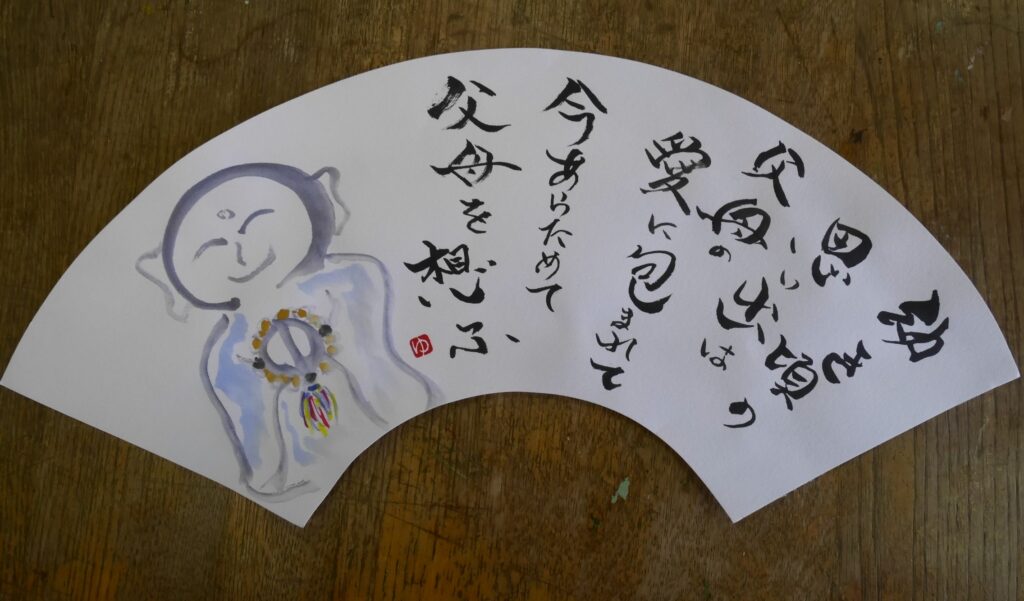 幼き頃の
思い出は
父母の
愛に包まれて
今あらためて
父母を想ふ
ゆ